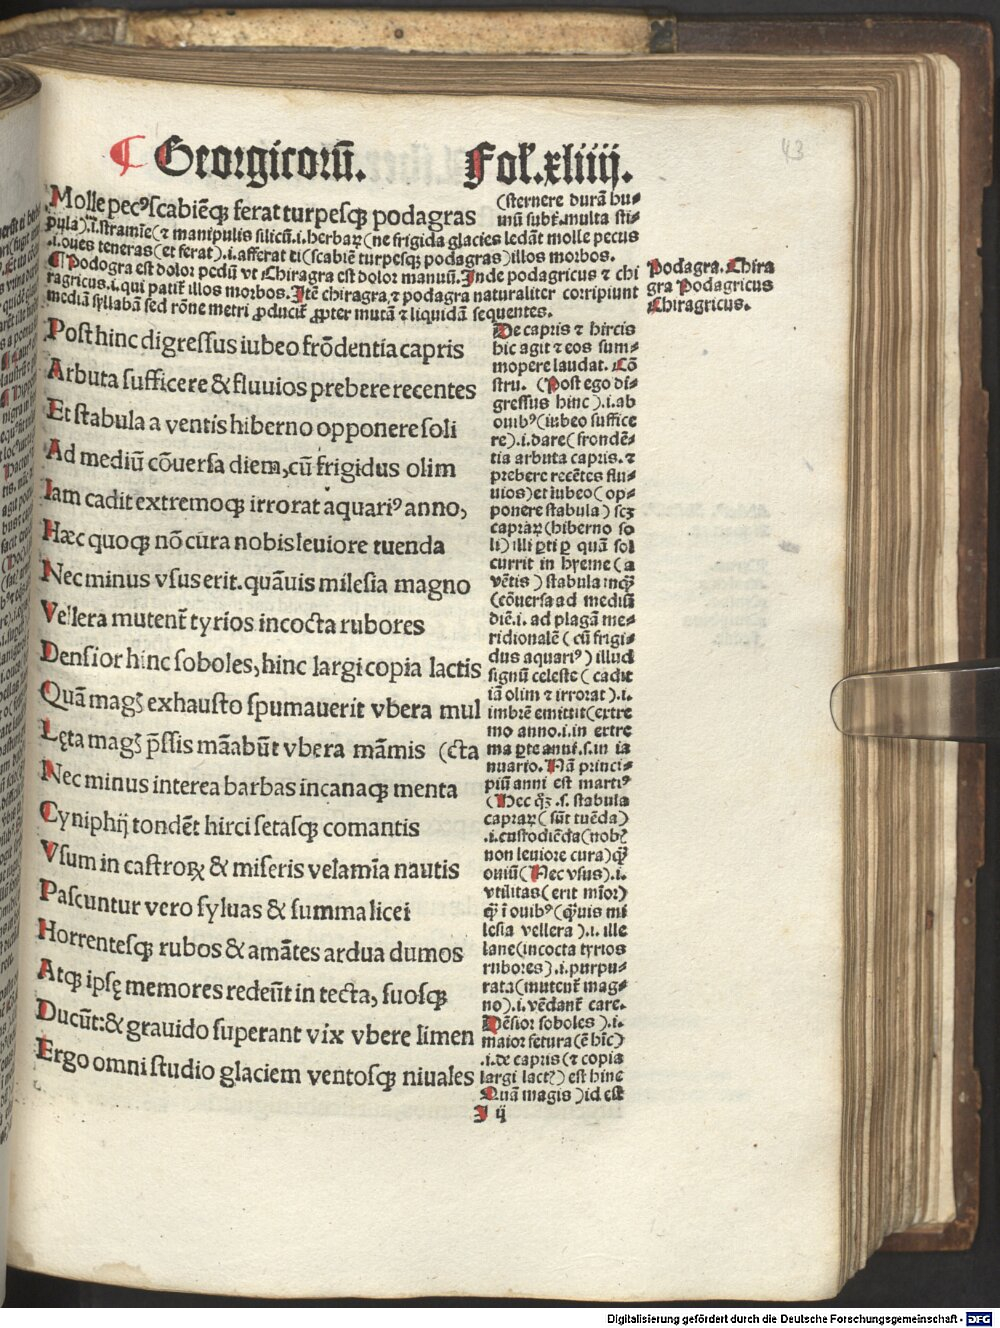 ¶ Georgicorū. Fol.xliiij.
43
Molle pecꝰ scabiēqꝫ ferat turpesqꝫ podagras (sternere durā hu⸗
mū subt̄.multa sti⸗
pula).i.stramīe(⁊ manipulis silicū.i.herbaꝝ(ne frigida glacies ledāt molle pecus
.i.oues teneras(et ferat).i.afferat ei(scabiē turpesqꝫ podagras)illos morbos.
¶ Podogra est dolor pedū vt Chiragra est dolor manuū.Inde podagricus ⁊ chi
ragricus.i.qui patit᷑ illos morbos.Itē chiragra,⁊ podagra naturaliter corripiunt
mediā syllabā sed rōne metri ꝓducit᷑ ꝓpter mutā ⁊ liquidā sequentes.
Podagra.Chira
gra Podagricus
Chiragricus.
Post hinc digressus iubeo frōdentia capris
Arbuta sufficere & fluuios prebere recentes
Et stabula a ventis hiberno opponere soli
Ad mediū cōuersa diem,cū frigidus olim
Iam cadit extremoqꝫ irrorat aquariꝰ anno,
Hæc quoqꝫ nō cura nobis leuiore tuenda
Nec minus vsus erit.quāuis milesia magno
Vellera mutent᷑ tyrios incocta rubores
Densior hinc soboles,hinc largi copia lactis
Quā magꝭ exhausto spumauerit vbera mul
Lęta magꝭ p̄ssis māabūt vbera māmis (cta
Nec minus interea barbas incanaqꝫ menta
Cyniphij tondēt hirci setasqꝫ comantis
Vsum in castroꝝ & miseris velamīa nautis
Pascuntur vero syluas & summa licei
Horrentesqꝫ rubos & amātes ardua dumos
Atqꝫ ipsę memores redeūt in tecta, suosqꝫ
Ducūt:& grauido superant vix vbere limen
Ergo omni studio glaciem ventosqꝫ niuales
De capris ⁊ hircis
hic agit ⁊ eos sum⸗
mopere laudat. Cō
stru. (Post ego di⸗
gressus hinc).i.ab
ouibꝰ(iubeo suffice
re).i.dare(frondē⸗
tia arbuta capris.⁊
prebere recētes flu⸗
uios)et iubeo(op⸗
ponere stabula) scꝫ
capraꝝ(hiberno so
li)illi ꝑti ꝑ quā sol
currit in hyeme(a
vētis)stabula inqꝫ
(cōuersa ad mediū
diē.i. ad plagā me⸗
ridionalē(cū frigi⸗
dus aquariꝰ)illud
signū celeste(cadit
iā olim ⁊ irrorat).i.
imbrē emittit(extre
mo anno.i.in extre
ma ꝑte anni.s.in ia
nuario.Nā princi⸗
piū anni est martiꝰ
(Hec qꝫ.s. stabula
capraꝝ(sūt tuēda)
.i.custodiēda(nobꝭ
non leuiore cura)qꝫ
ouiū(Nec vsus).i.
vtilitas(erit mīor)
qꝫ ī ouibꝰ(qꝫuis mi
lesia vellera).i. ille
lane(incocta tyrios
rubores).i.purpu⸗
rata(mutent᷑ mag⸗
no).i.vēdant᷑ care.
Dēsior soboles).i.
maior fetura(ē hīc)
.i.de capris(⁊ copia
largi lactꝭ)est hinc
Quā magis)id est
I ij
Digitalisierung gefördert durch die Deutsche Forschungsgemeinschaft - DFG